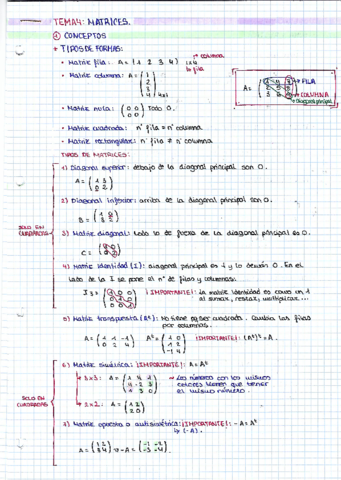 TEMA 4: MATRICES.
① CONCEPTOS
+ TIPOS DE FORMAS:
• Matriz fila: A = (1 2 3 4) 1x4 → columna ↳ fila
• Matriz columna: A = (1 2 3 4) 4x1
A = → FILA
→ COLUMNA
→ Diagonal principal
• Matriz nula: (0 0 0 0) Todo 0.
• Matriz cuadrada: nº fila = nº columna
• Matriz rectangular: nº fila ≠ nº columna
TIPOS DE MATRICES:
SOLO EN CUADRADAS
1) Diagonal superior: debajo de la diagonal principal son 0.
A = (1 3 0 2)
2) Diagonal inferior: arriba de la diagonal principal son 0.
B =
3) Matriz diagonal: todo lo de fuera de la diagonal principal es 0.
C =
4) Matriz identidad (I): diagonal principal es 1 y lo demás 0. En el
lado de la I se pone el nº de filas y columnas.
I3 = ¡IMPORTANTE!: La matriz identidad es como un 1
al sumar, restar, multiplicar...
5) Matriz transpuesta (Aᵗ): No tiene q ser cuadrada. Cambia las filas
por columnas.
A = (1 1 -1 0 2 4) Aᵗ = (1 0 1 2 -1 4) ¡IMPORTANTE!: (Aᵗ)ᵗ = A
SOLO EN CUADRADAS
6) Matriz simétrica: ¡IMPORTANTE!: A = Aᵗ
→ 3x3: A = (1 4 1 4 -2 3 1 3 0) → Los números con los mismos
colores tienen que tener
el mismo número.
→ 2x2: A = (1 2 2 0)
7) Matriz opuesta o antisimétrica: ¡IMPORTANTE!: -A = Aᵗ
↳ (-A).
A = → -A =